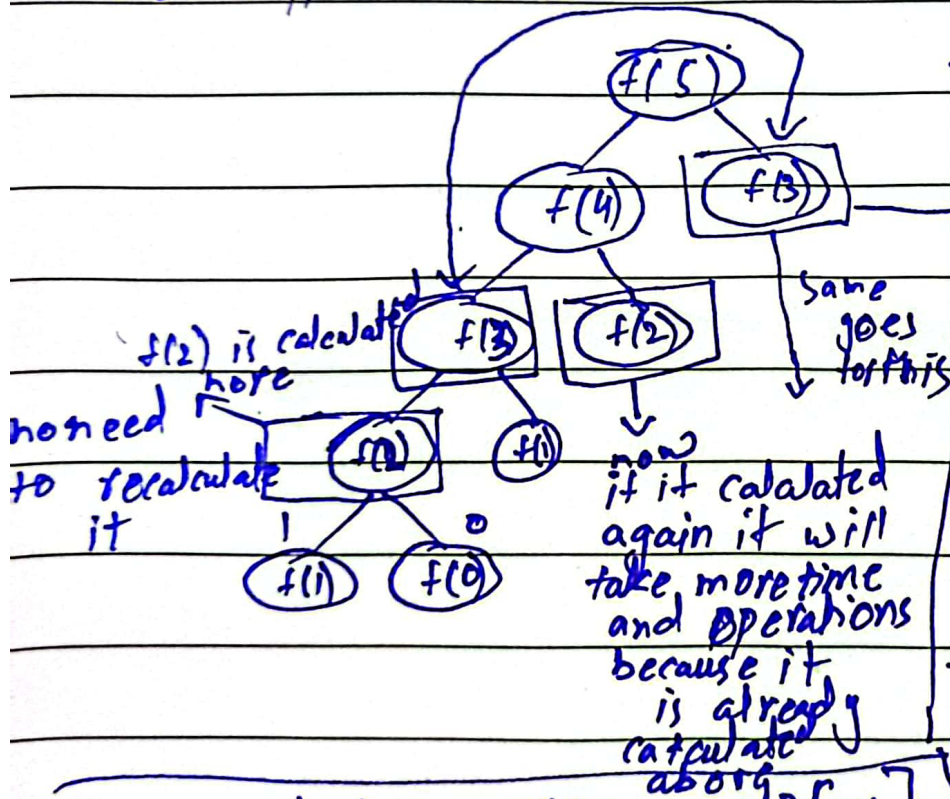 f(5)
f(4)
f(3)
f(3)
f(2)
same
goes
for this
f(2) is calculated
here
no need
to recalculate
it
f(2)
f(1)
1
0
f(1)
f(0)
now
if it calalated
again it will
take more time
and operations
because it
is already
calculate
above